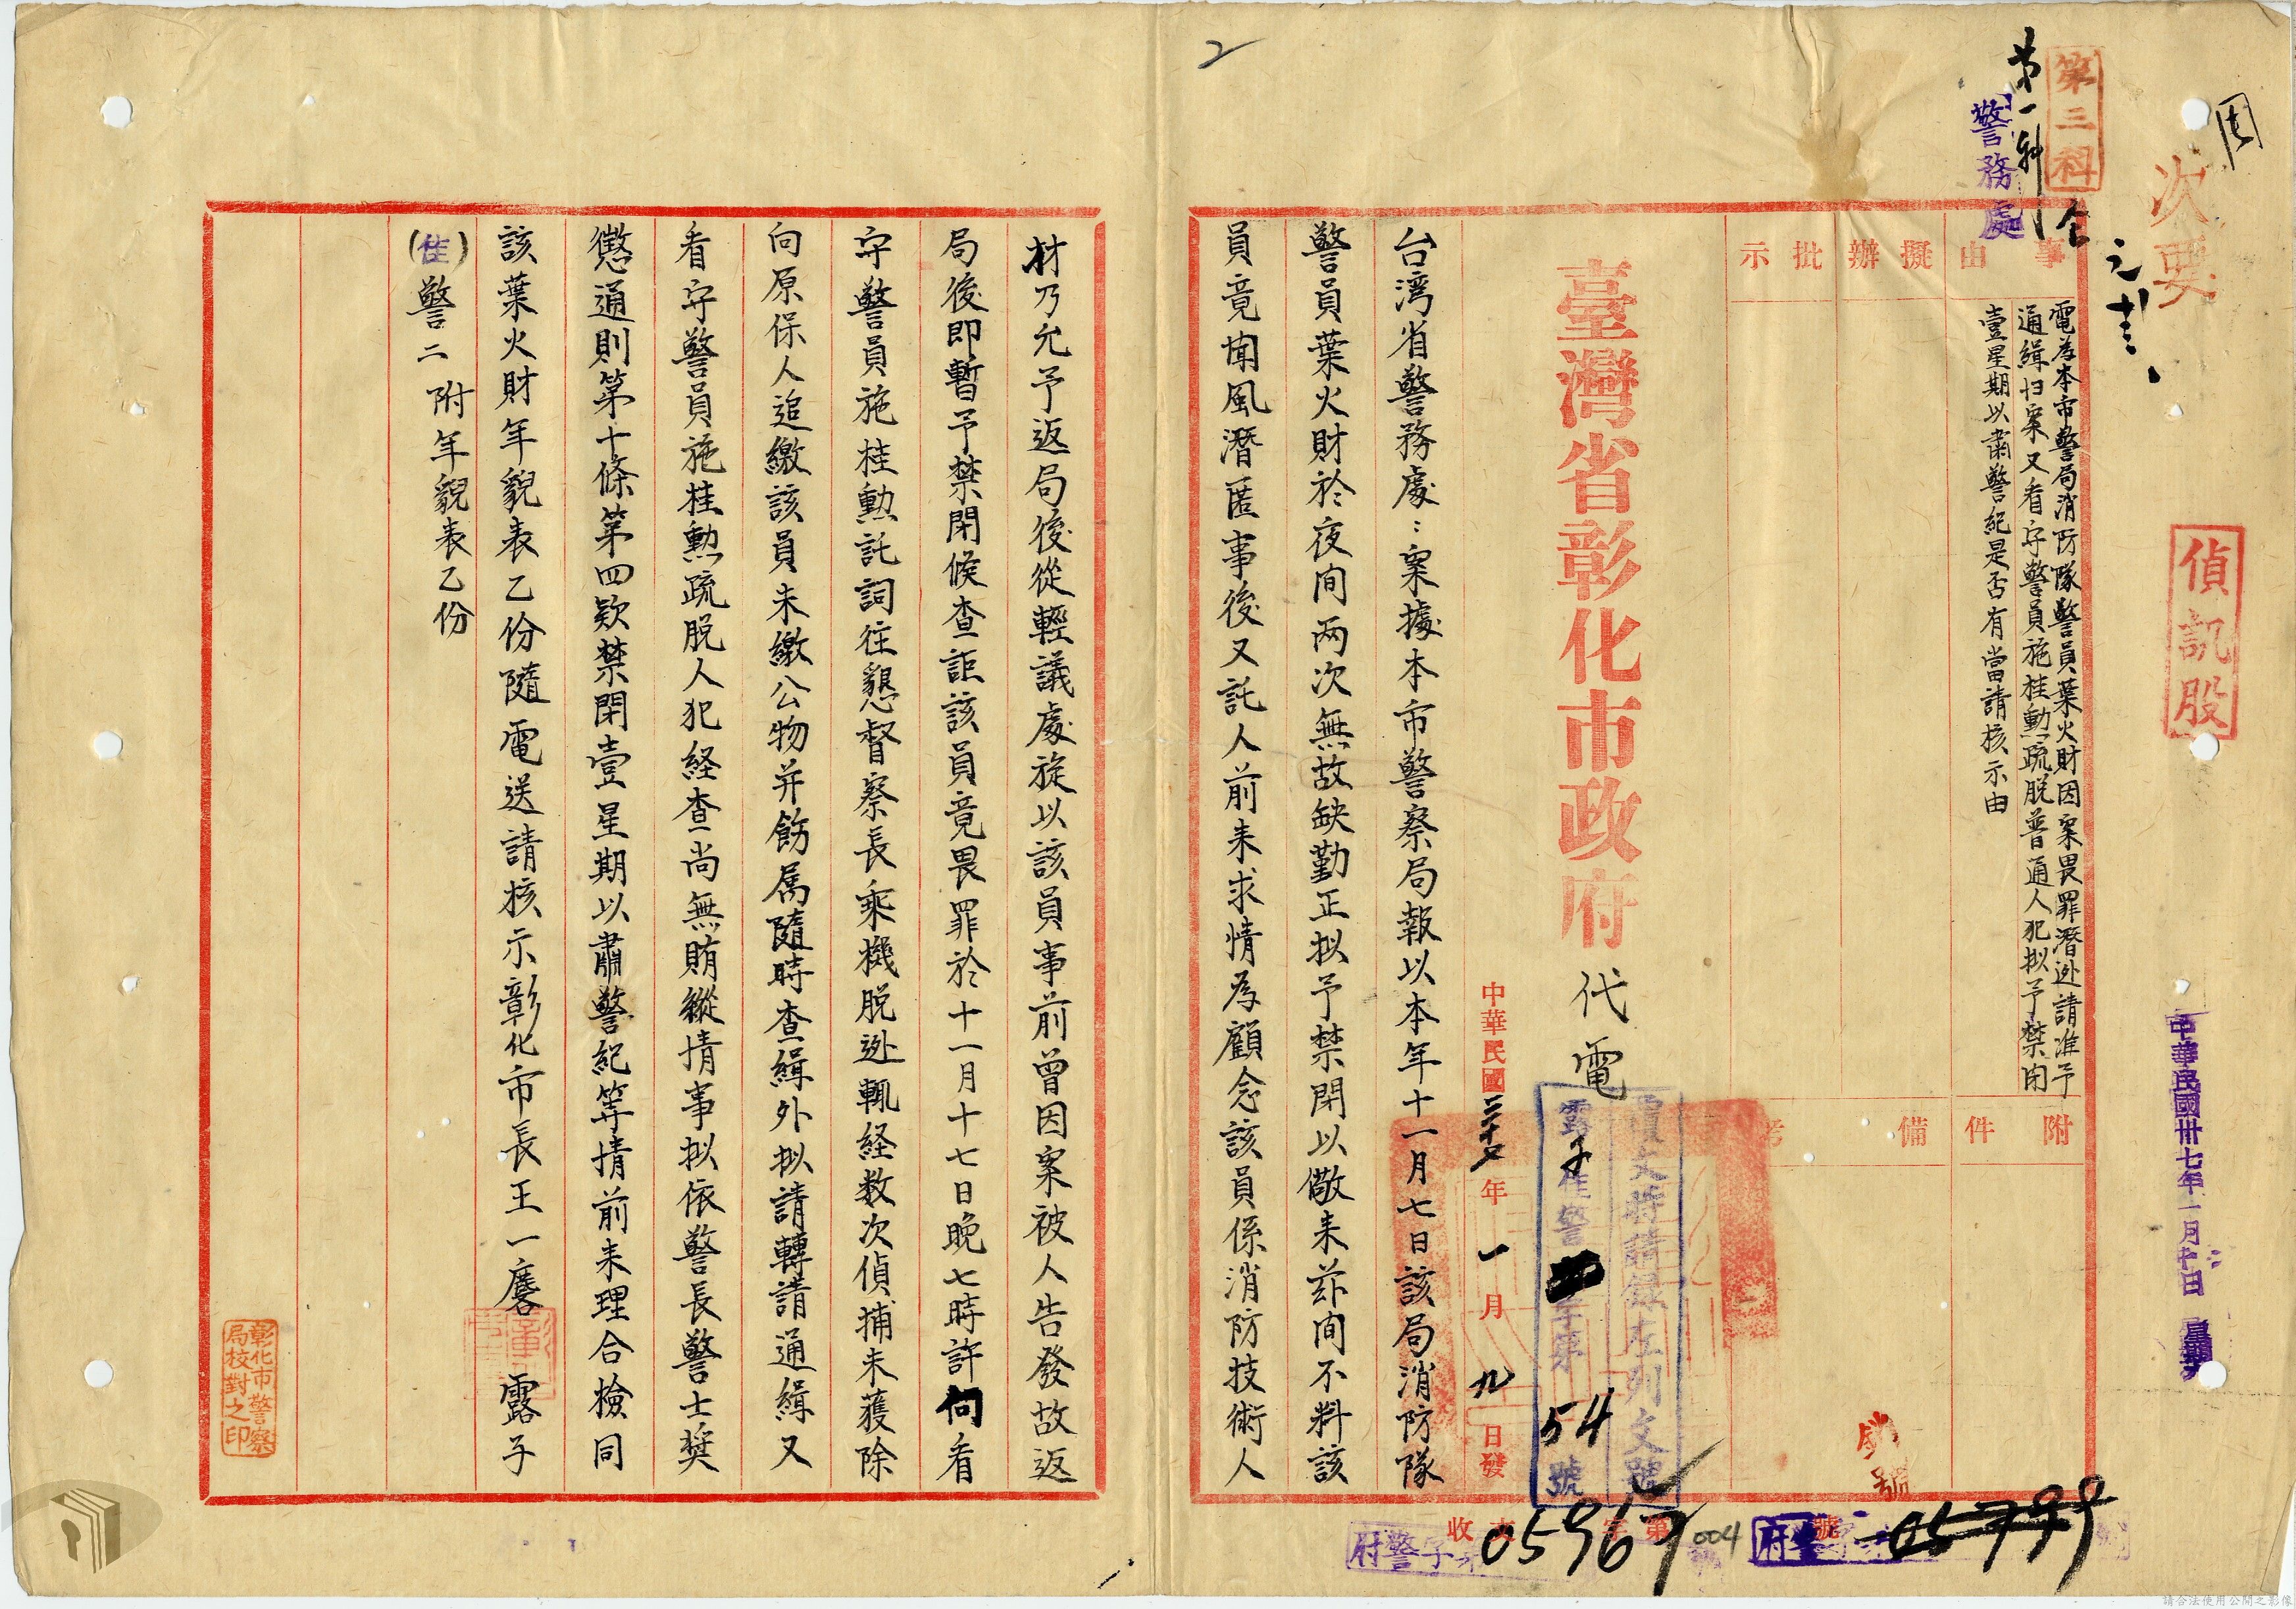 第三科
第一科
警務處
次要
偵訊股
中華民國卅七年一月
事由
擬辦
批示
電為本市警局消防隊警員葉火財因案畏罪潛逃請准予
通緝扫案又看守警員施桂勳疏脱普通人犯拟予禁闭
壹星期以肅警紀是否有當請核示由
附件
備考
臺灣省彰化市政府 代電
中華民國三十七年一月九日發
覆文時請錄左列文號
露子佳警 字第 54 號
台湾省警務處：案據本市警察局報以本年十一月七日該局消防隊
警員葉火財於夜间两次無故缺勤正拟予禁閉以儆来兹间不料該
員竟闻風潛匿事後又託人前来求情為顧念該員係消防技術人
收文 字第 號
05967
004
05799
2
材乃允予返局後從輕議處旋以該員事前曾因案被人告發故返
局後即暫予禁閉候查詎該員竟畏罪於十一月十七日晚七時許向看
守警員施桂勳託詞往懇督察長乘機脱逃輒経数次偵捕未獲除
向原保人追繳該員未繳公物并飭属隨時查緝外拟請轉請通緝又
看守警員施桂勳疏脱人犯経查尚無賄縱情事拟依警長警士奨
懲通則第十條第四欵禁閉壹星期以肅警紀等情前来理合檢同
該葉火財年貌表乙份隨電送請核示彰化市長王一麐露子
(佳)警二附年貌表乙份
彰化市警察
局校對之印
請合法使用公開之影像